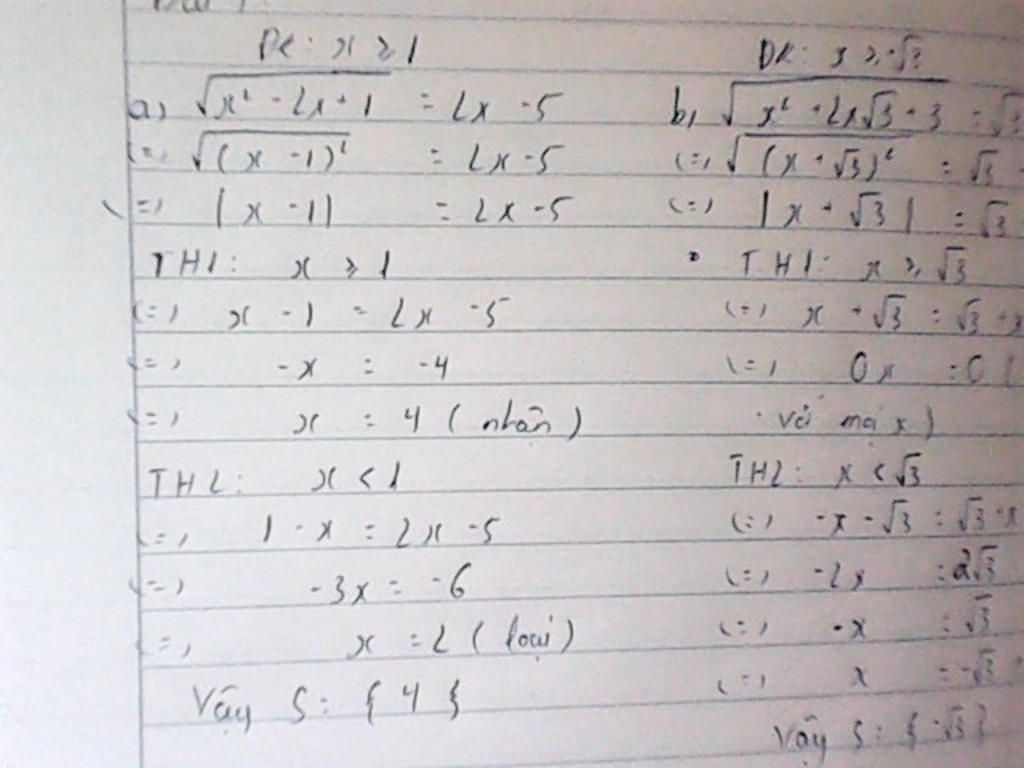 ĐK: x ≥ 1
a, √(x² - 2x + 1) = 2x - 5
(=) √((x - 1)²) = 2x - 5
(=) |x - 1| = 2x - 5
TH1: x ≥ 1
(=) x - 1 = 2x - 5
(=) -x = -4
(=) x = 4 (nhận)
TH2: x < 1
(=) 1 - x = 2x - 5
(=) -3x = -6
(=) x = 2 (loại)
Vậy S = {4}
ĐK: x ≥ -√3
b, √(x² + 2x√3 + 3) = √3
(=) √((x + √3)²) = √3
(=) |x + √3| = √3
TH1: x ≥ √3
(=) x + √3 = √3 + x
(=) 0x = 0 (
với mọi x)
TH2: x < √3
(=) -x - √3 = √3 + x
(=) -2x = 2√3
(=) -x = √3
(=) x = -√3
Vậy S = {-√3}